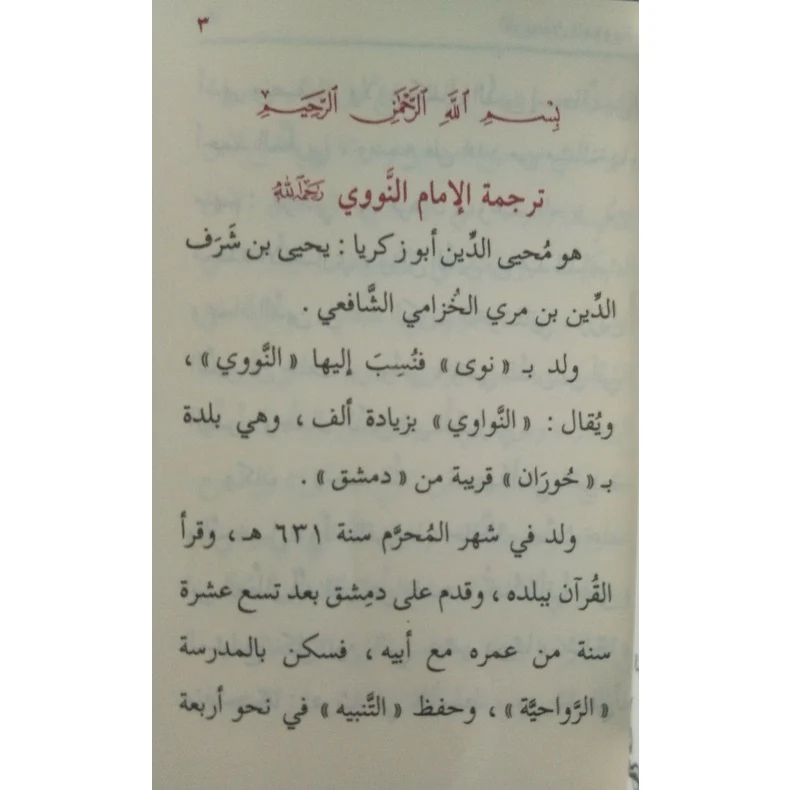 ٣
بِسْمِ ٱللَّهِ ٱلرَّحْمَٰنِ ٱلرَّحِيمِ
ترجمة الإمام النَّووي رَحِمَهُ ٱللَّهُ
هو مُحيى الدِّين أبو زكريا : يحيى بن شَرَف
الدِّين بن مري الحُزامي الشَّافعي .
ولد بـ «نوى» فنُسِبَ إليها «النَّووي» ،
ويُقال : «النَّواوي» بزيادة ألف ، وهي بلدة
بـ «حُورَان» قريبة من «دمشق» .
ولد في شهر المُحرَّم سنة ٦٣١ هـ ، وقرأ
القُرآن ببلده ، وقدم على دمِشق بعد تسع عشرة
سنة من عمره مع أبيه ، فسكن بالمدرسة
«الرَّواحيَّة» ، وحفظ «التَّنبيه» في نحو أربعة